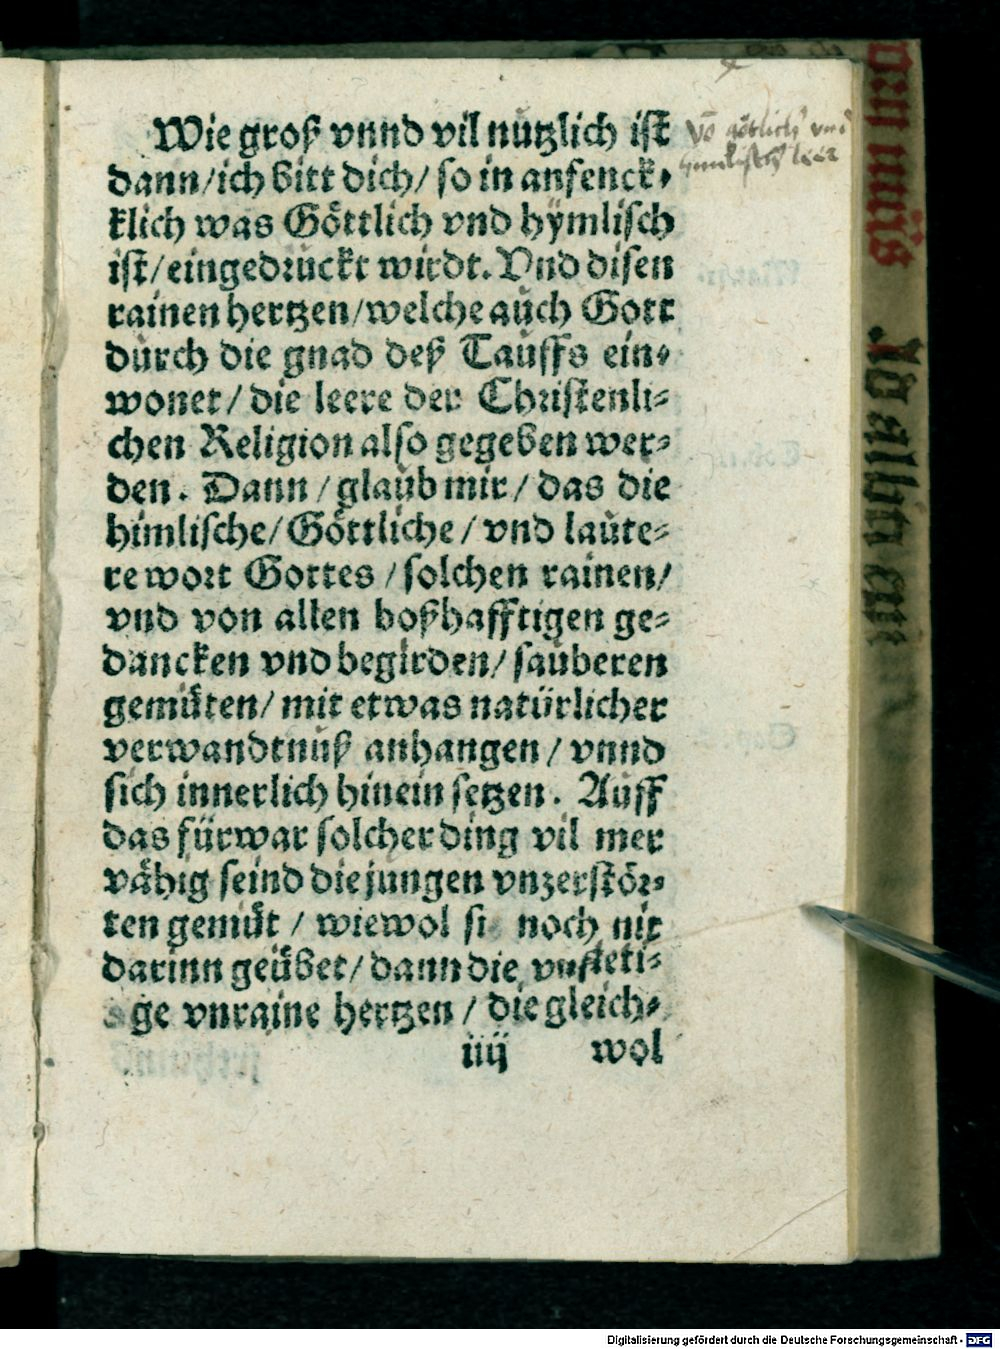 Wie groß vnnd vil nutzlich ist
dann/ich bitt dich/ so in anfenck⸗
klich was Göttlich vnd hymlisch
ist/eingedruckt wirdt. Vnd disen
rainen hertzen/welche auch Gott
durch die gnad deß Tauffs ein⸗
wonet/ die leere der Christenli⸗
chen Religion also gegeben wer⸗
den. Dann/glaub mir/ das die
himlische/Göttliche/ vnd laute⸗
re wort Gottes/solchen rainen/
vnd von allen boßhafftigen ge⸗
dancken vnd begirden/sauberen
gemüten/ mit etwas natürlicher
verwandtnuß anhangen/ vnnd
sich innerlich hinein setzen. Auff
das fürwar solcher ding vil mer
vähig seind die jungen vnzerstör⸗
ten gemüt/ wiewol si noch nit
darinn geübet/ dann die vnsteti⸗
ge vnraine hertzen/ die gleich⸗
iiij wol
Digitalisierung gefördert durch die Deutsche Forschungsgemeinschaft - DFG